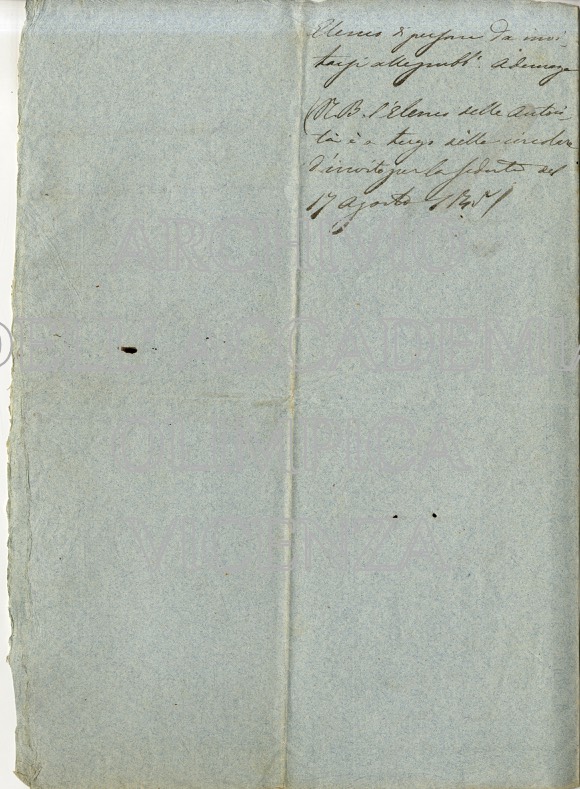 Elenco di persone da invi-
tarsi alle pubb.e Adunanze
(N.B. l'Elenco delle Autori-
tà è a tergo della circolare
d'invito per la seduta del
17 Agosto 1845)
ARCHIVIO
DELL'ACCADEMIA
OLIMPICA
VICENZA